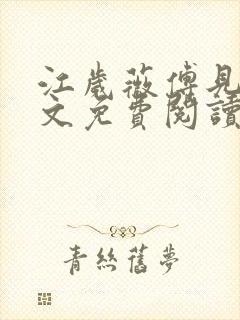 江歲薇傅見
文免費閱讀
青絲舊夢